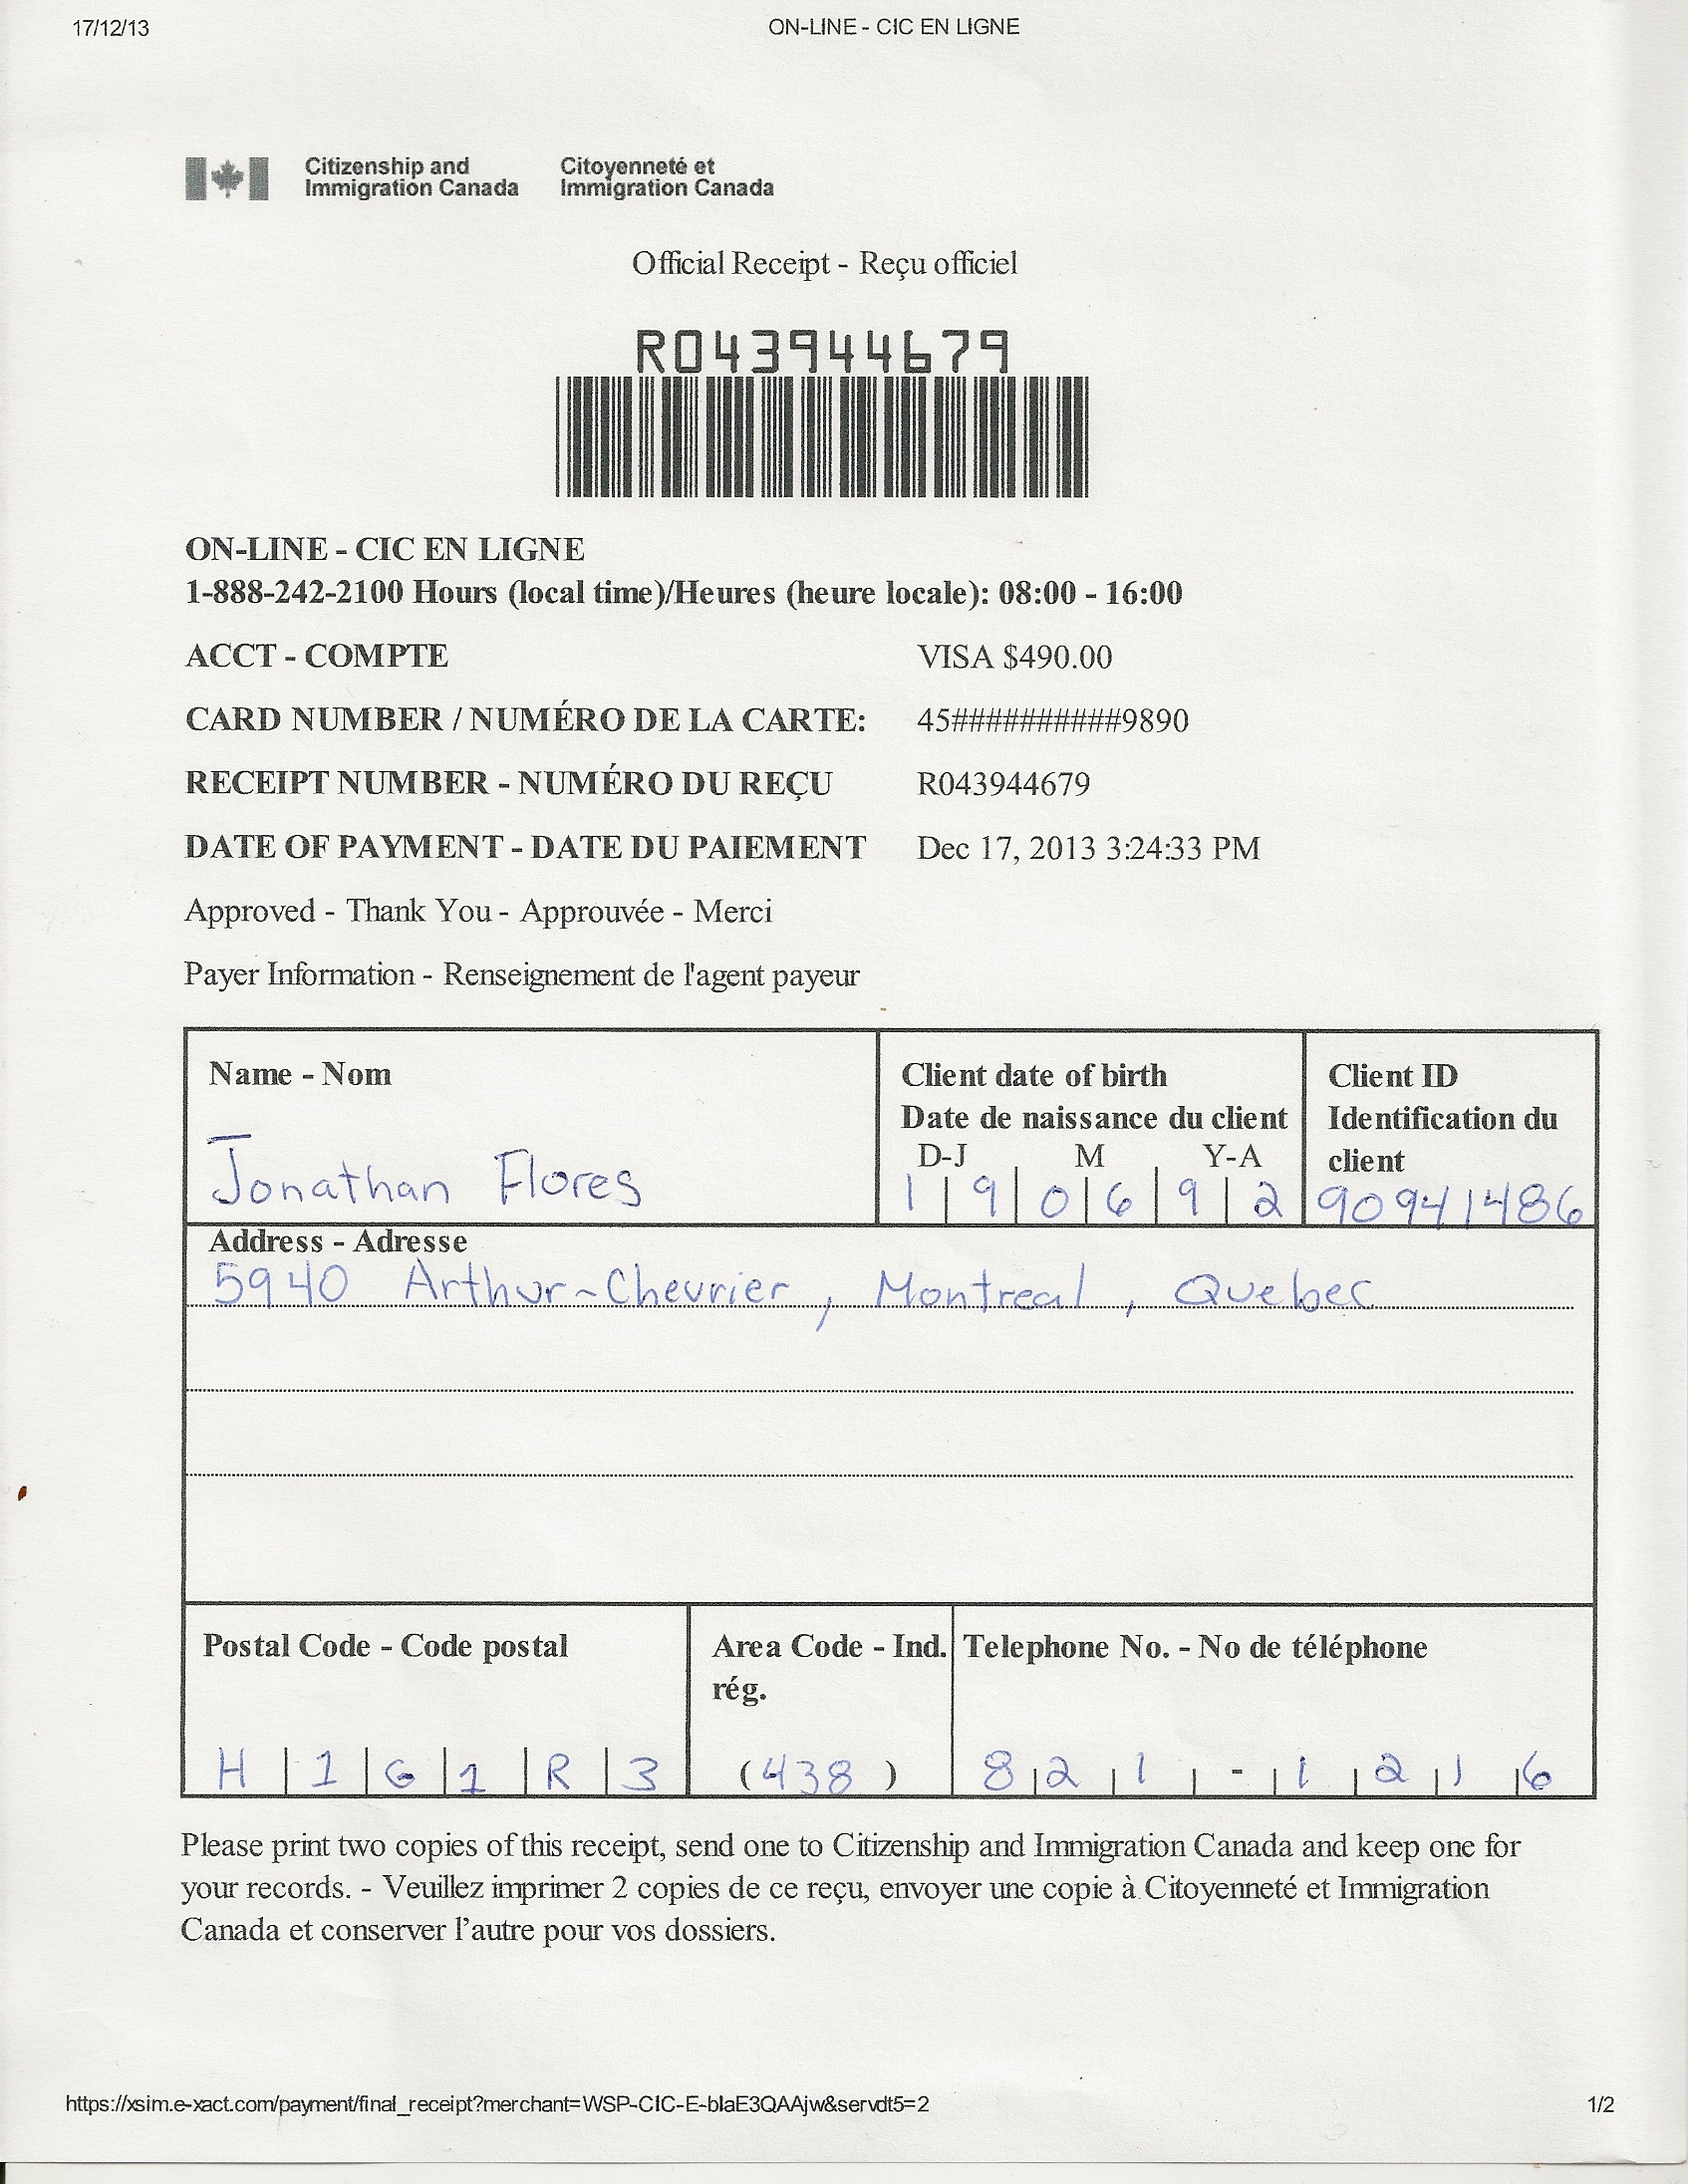 17/12/13 ON-LINE - CIC EN LIGNE
Citizenship and Citoyenneté et
Immigration Canada Immigration Canada
Official Receipt - Reçu officiel
R043944679
ON-LINE - CIC EN LIGNE
1-888-242-2100 Hours (local time)/Heures (heure locale): 08:00 - 16:00
ACCT - COMPTE VISA $490.00
CARD NUMBER / NUMÉRO DE LA CARTE: 45##########9890
RECEIPT NUMBER - NUMÉRO DU REÇU R043944679
DATE OF PAYMENT - DATE DU PAIEMENT Dec 17, 2013 3:24:33 PM
Approved - Thank You - Approuvée - Merci
Payer Information - Renseignement de l'agent payeur
Name - Nom
Jonathan Flores
Client date of birth
Date de naissance du client
D-J M Y-A
1 9 0 6 9 2
Client ID
Identification du
client
90941486
Address - Adresse
5940 Arthur-Chevrier, Montreal, Quebec
Postal Code - Code postal
H 1 G 1 R 3
Area Code - Ind.
rég.
(438)
Telephone No. - No de téléphone
8 2 1 - 1 2 1 6
Please print two copies of this receipt, send one to Citizenship and Immigration Canada and keep one for
your records. - Veuillez imprimer 2 copies de ce reçu, envoyer une copie à Citoyenneté et Immigration
Canada et conserver l’autre pour vos dossiers.
https://xsim.e-xact.com/payment/final_receipt?merchant=WSP-CIC-E-blaE3QAAjw&servdt5=2 1/2